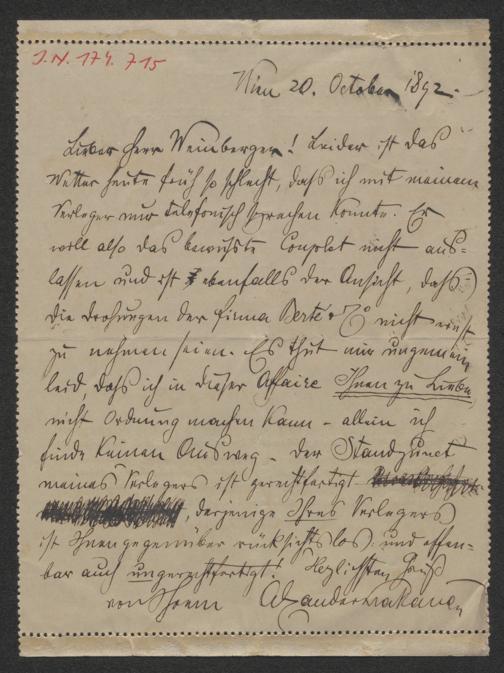 J.N. 174.715
Wien 20. October 1892.
Lieber Herr Weinberger! Leider ist das
Wetter heute früh so schlecht, daß ich mit meinem
Verleger nur telefonisch sprechen konnte. Er
will also das bewußte Couplet nicht aus-
lassen und ist ebenfalls der Ansicht, daß
die Drohungen der Firma Berté & Co nicht ernst
zu nehmen seien. Es thut mir ungemein
leid, daß ich in dieser Affaire Ihnen zu Liebe
nicht Ordnung machen kann - allein ich
finde keinen Ausweg - der Standpunct
meines Verlegers ist gerechtfertigt
, derjenige Ihres Verlegers
ist Ihnen gegenüber rücksichtslos und offen-
bar auch ungerechtfertigt! Herzlichsten Gruß
von Ihrem